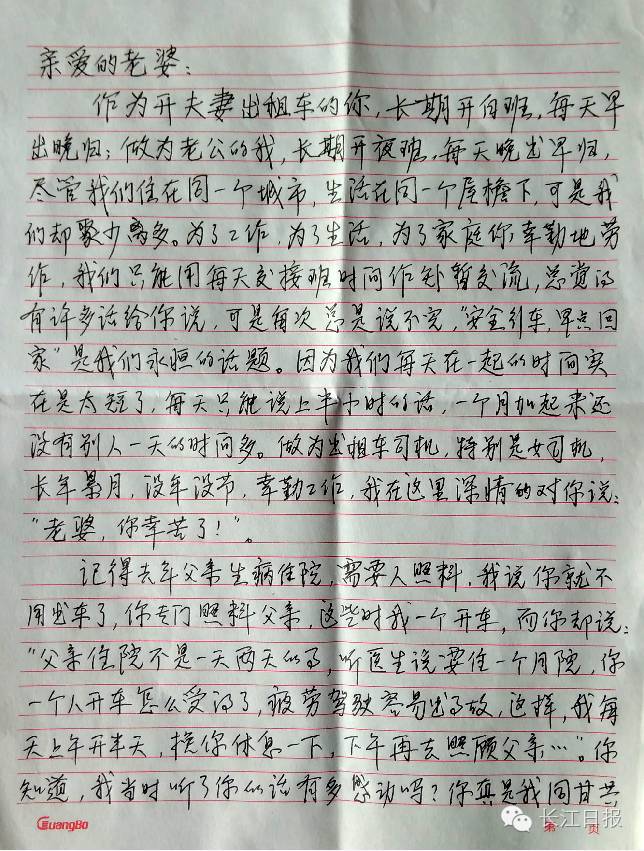 亲爱的老婆：
作为开夫妻出租车的你，长期开白班，每天早
出晚归；做为老公的我，长期开夜班，每天晚出早归，
尽管我们住在同一个城市，生活在同一个屋檐下，可是我
们却聚少离多。为了工作，为了生活，为了家庭你辛勤地劳
作，我们只能用每天交接班时间作短暂交流，总觉得
有许多话给你说，可是每次总是说不完，“安全行车，早点回
家”是我们永恒的话题。因为我们每天在一起的时间实
在是太短了，每天只能说上半小时的话，一个月加起来还
没有别人一天的时间多。做为出租车司机，特别是女司机，
长年累月，没年没节，辛勤工作，我在这里深情的对你说：
“老婆，你辛苦了！”。
记得去年父亲生病住院，需要人照料，我说你就不
用出车了，你专门照料父亲，这些时我一个开车，而你却说：
“父亲住院不是一天两天的了，听医生说要住一个月院，你
一个人开车怎么受得了，疲劳驾驶容易出事故，这样，我每
天上午开半天，换你休息一下，下午再去照顾父亲…”。你
知道，我当时听了你的话有多感动吗？你真是我同甘共
GuangBo
第 页
长江日报